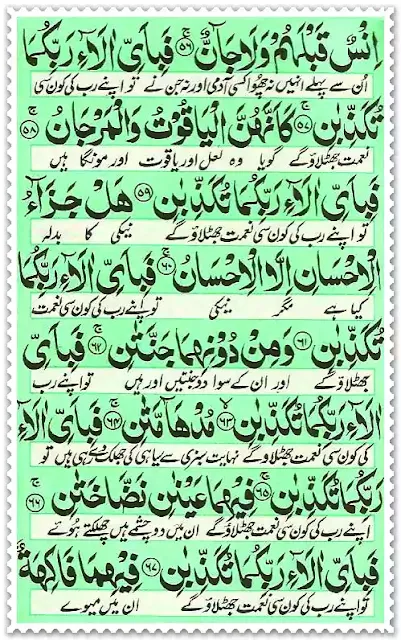 اِنۡسٌ قَبۡلَهُمۡ وَلَا جَآنٌّ ﴿۵۶﴾ فَبِاَىِّ اٰلَآءِ رَبِّكُمَا
اُن سے پہلے انہیں نہ چُھوا کسی آدمی اور نہ جن نے تو اپنے رب کی کون سی
تُكَذِّبٰنِ ﴿۵۷﴾ كَاَنَّهُنَّ الۡيَاقُوۡتُ وَالۡمَرۡجَانُ ﴿۵۸﴾
نعمت جھٹلاؤ گے گویا وہ لعل اور یاقوت اور مونگا ہیں
فَبِاَىِّ اٰلَآءِ رَبِّكُمَا تُكَذِّبٰنِ ﴿۵۹﴾ هَلۡ جَزَآءُ
تو اپنے رب کی کون سی نعمت جھٹلاؤ گے نیکی کا بدلہ
الۡاِحۡسَانِ اِلَّا الۡاِحۡسَانُ ﴿۶۰﴾ فَبِاَىِّ اٰلَآءِ رَبِّكُمَا
کیا ہے مگر نیکی تو اپنے رب کی کون سی نعمت
تُكَذِّبٰنِ ﴿۶۱﴾ وَمِنۡ دُوۡنِهِمَا جَنَّتٰنِ ﴿۶۲﴾ فَبِاَىِّ
جھٹلاؤ گے اور ان کے سوا دو جنتیں اور ہیں تو اپنے رب
اٰلَآءِ رَبِّكُمَا تُكَذِّبٰنِ ﴿۶۳﴾ مُدۡهَآمَّتٰنِ ﴿۶۴﴾ فَبِاَىِّ اٰلَآءِ
کی کون سی نعمت جھٹلاؤ گے نہایت سبزی سے سیاہی کی جھلک دے رہی ہیں تو
رَبِّكُمَا تُكَذِّبٰنِ ﴿۶۵﴾ فِيۡهِمَا عَيۡنٰنِ نَضَّاخَتٰنِ ﴿۶۶﴾
اپنے رب کی کون سی نعمت جھٹلاؤ گے ان میں دو چشمے ہیں چھلکتے ہوئے
فَبِاَىِّ اٰلَآءِ رَبِّكُمَا تُكَذِّبٰنِ ﴿۶۷﴾ فِيۡهِمَا فَاكِهَةٌ
تو اپنے رب کی کون سی نعمت جھٹلاؤ گے ان میں میوے